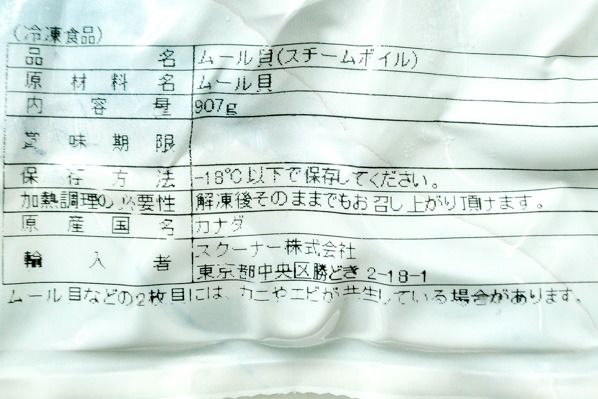 (冷凍食品)
品名 ムール貝(スチームボイル)
原材料名 ムール貝
内容量 907g
賞味期限
保存方法 -18℃以下で保存してください。
加熱調理の必要性 解凍後そのままでもお召し上がり頂けます。
原産国名 カナダ
輸入者 スクーナー株式会社
東京都中央区勝どき2-18-1
ムール貝などの2枚貝には、カニやエビが共生している場合があります。